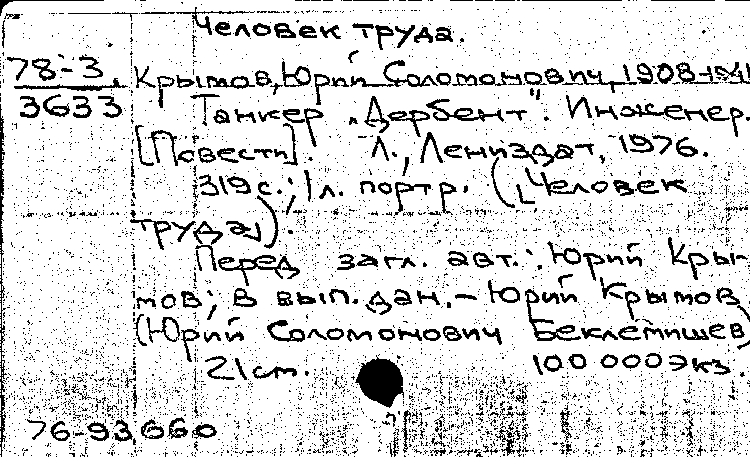 Человек труда.
78-3. Крымов, Юрий Соломонович, 1908-1941
3633 Танкер „Дербент". Инженер.
[Повести]. Л., Лениздат, 1976.
319 с.; 1 л. портр. ([Человек
труда]).
Перед загл. авт.: Юрий Кры-
мов; в вып. дан. – Юрий Крымов
(Юрий Соломонович Беклемишев)
21 см. 100 000 экз.
76-93660